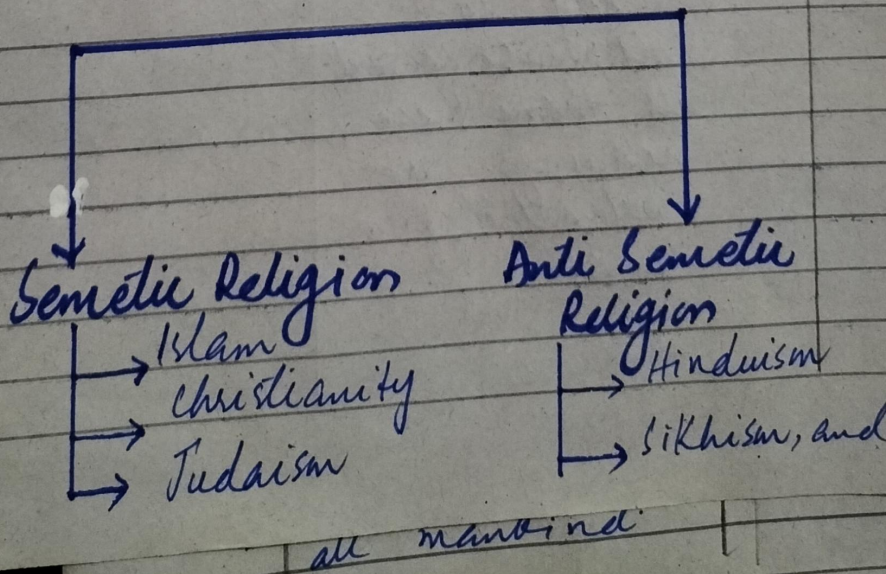 Semetic Religion
Islam
Christianity
Judaism
Anti Semetic
Religion
Hinduism
Sikhism, and
all mankind